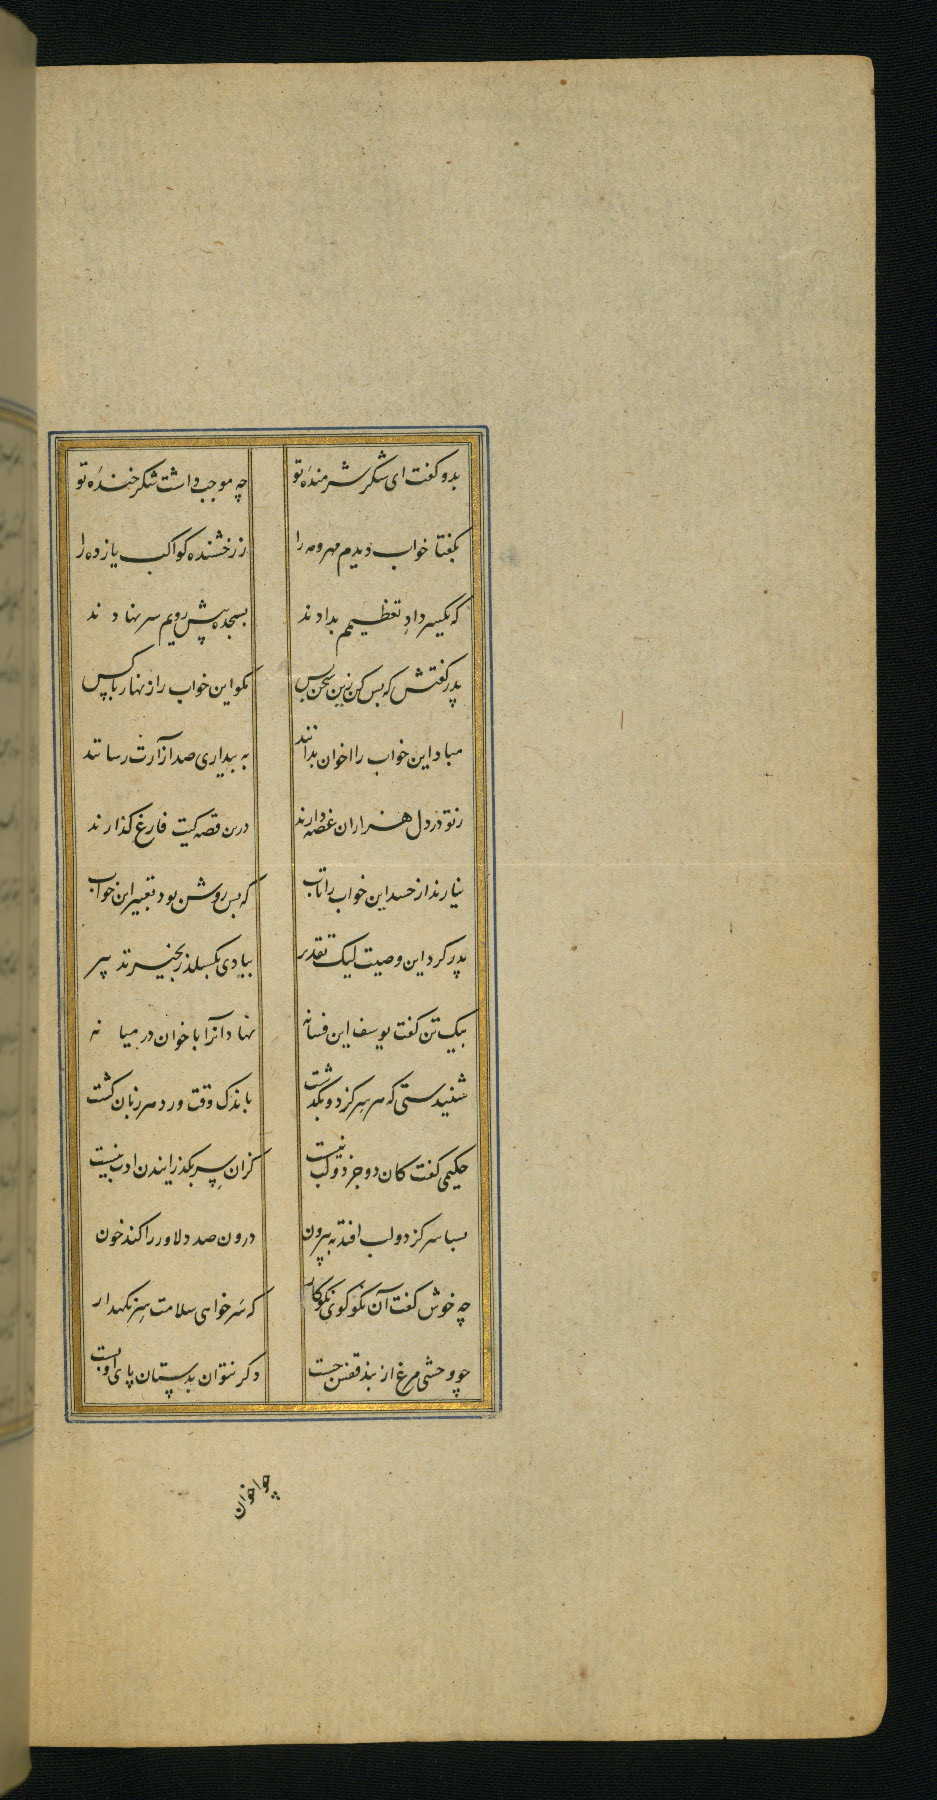 بدو گفت ای شکر شرمندهٔ تو چه موجب داشت شکر خندهٔ تو
بگفتا خواب دیدم مهر و مه را ز رخشنده کواکب یازده را
که یکسر داد تعظیمم بدادند بسجده پیش رویم سر نهادند
پدر گفتش که بس کن زین سخن بس مگو این خواب را زنهار با کس
مباد این خواب را اخوان بدانند به بیداری صد آزارت رسانند
ز تو در دل هزاران غصه دارند درین قصه کیت فارغ گذارند
نیارند از حسد این خواب را تاب که بس روشن بود تعبیر این خواب
پدر کرد این وصیت لیک تقدیر ببادی بگسلد زنجیر تدبیر
بیک تن گفت یوسف این فسانه نهاد آنرا باخوان در میانه
شنیدستی که هر سر کز دو بگذشت باندک وقت ورد هر زبان گشت
حکیمی گفت کان دو جز دو لب نیست کزان سر بگذرانیدن ادب نیست
بسا سر کز دو لب افتد به بیرون درون صد دلاور را کند خون
چه خوش گفت آن نکوگوی نکوکار که سر خواهی سلامت سر نگهدار
چو وحشی مرغ از بند قفس جست دگر نتوان بدستان پای او بست
چو اخوان